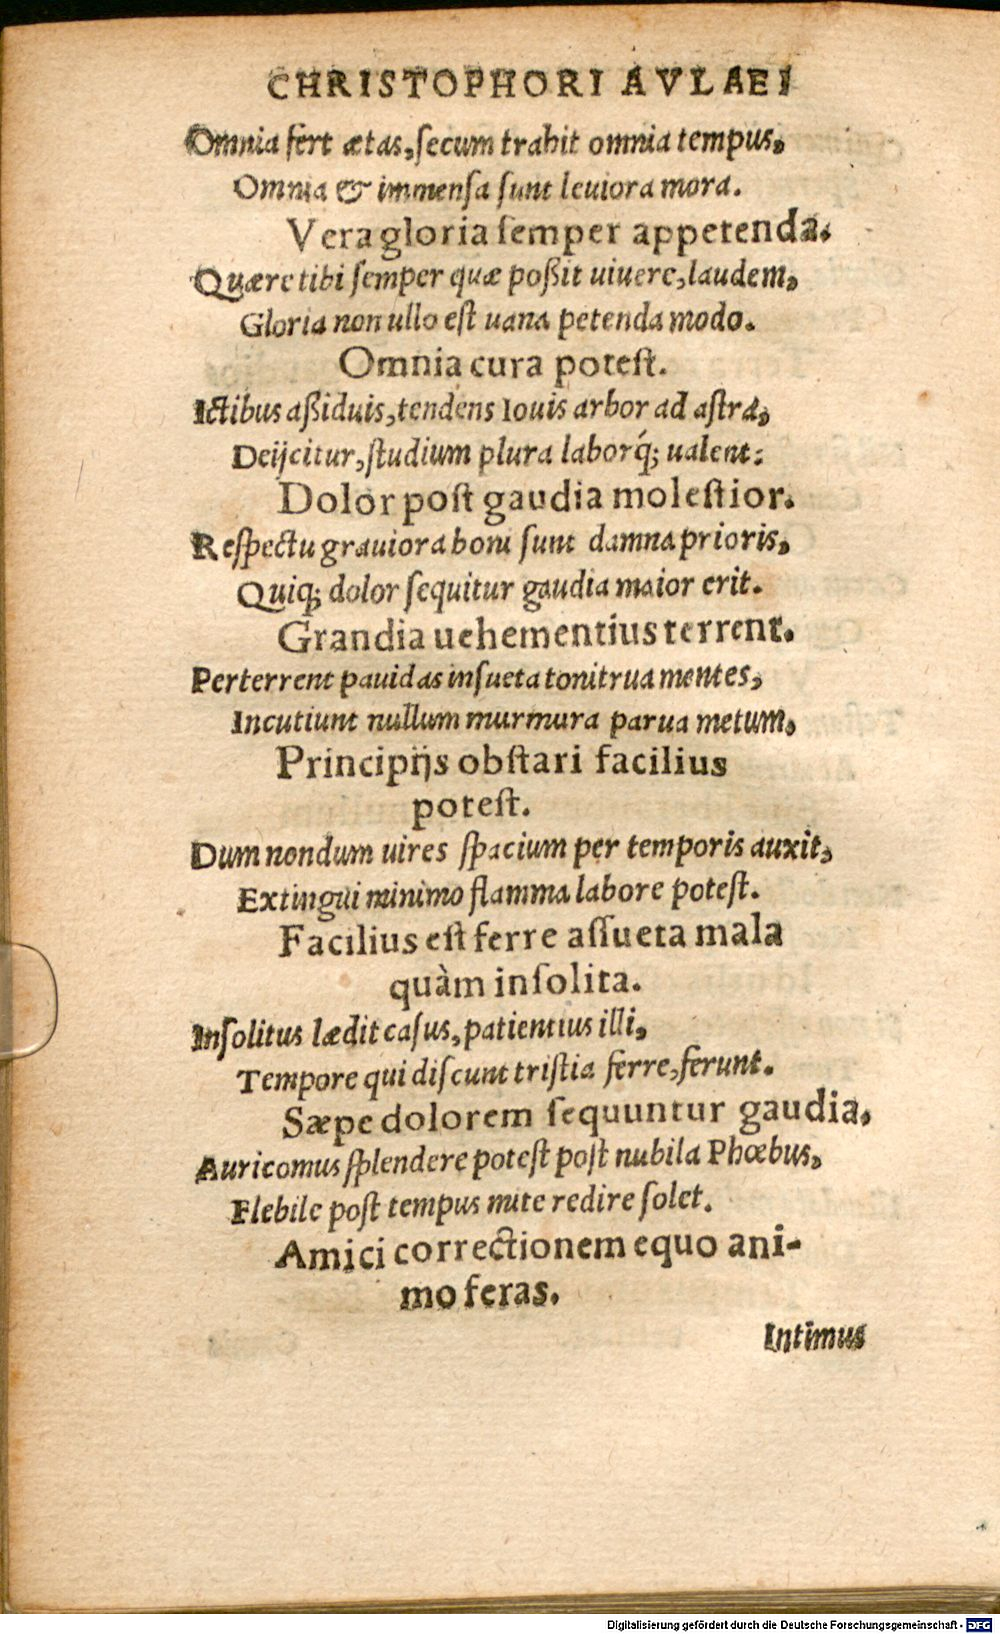 CHRISTOPHORI AVLAEI
Omnia fert ætas, secum trahit omnia tempus,
Omnia & immensa sunt leuiora mora.
Vera gloria semper appetenda.
Quære tibi semper quæ poßit uiuere, laudem,
Gloria non ullo est uana petenda modo.
Omnia cura potest.
Ictibus aßiduis, tendens Iouis arbor ad astra,
Deijcitur, studium plura laborq́; ualent:
Dolor post gaudia molestior.
Respectu grauiora boni sunt damna prioris,
Quiq; dolor sequitur gaudia maior erit.
Grandia uehementius terrent.
Perterrent pauidas insueta tonitrua mentes,
Incutiunt nullum murmura parua metum.
Principijs obstari facilius
potest.
Dum nondum uires spacium per temporis auxit,
Extingui minimo flamma labore potest.
Facilius est ferre assueta mala
quàm insolita.
Insolitus lædit casus, patientius illi,
Tempore qui discunt tristia ferre, ferunt.
Sæpe dolorem sequuntur gaudia,
Auricomus splendere potest post nubila Phœbus,
Flebile post tempus mite redire solet.
Amici correctionem equo ani-
mo feras.
Intimus
Digitalisierung gefördert durch die Deutsche Forschungsgemeinschaft - DFG